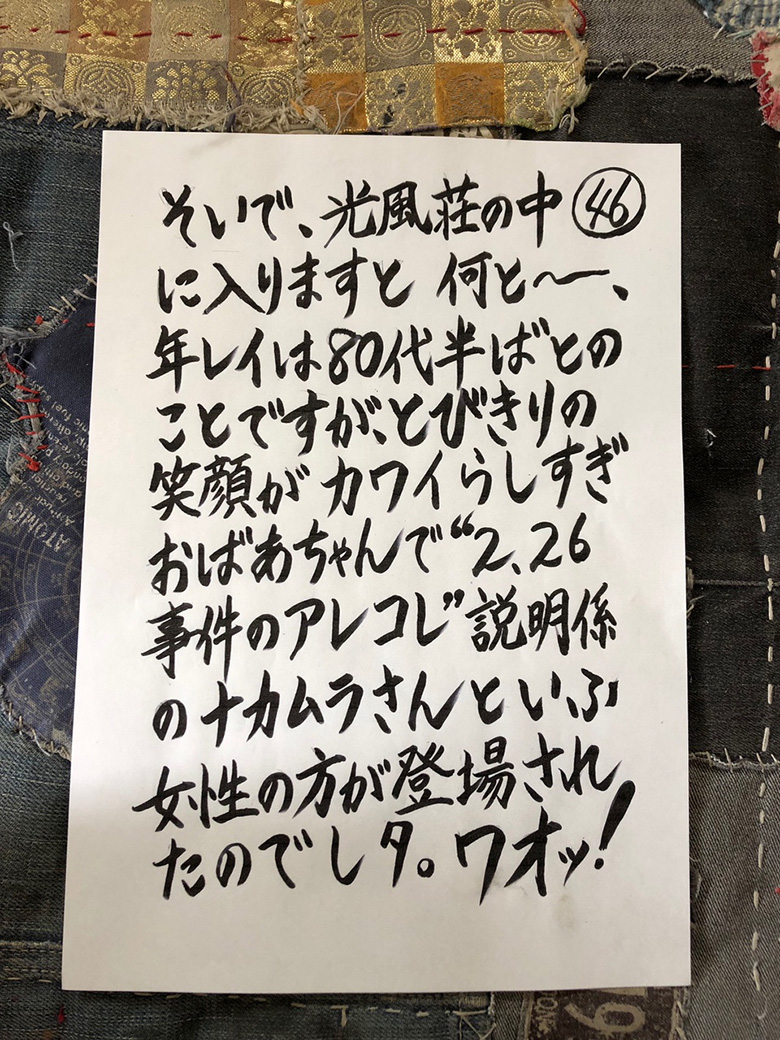 そいで、光風荘の中 ㊻
に入りますと 何と〜、
年レイは80代半ばとの
ことですが、とびきりの
笑顔がカワイらしすぎ
おばあちゃんで“2、26
事件のアレコレ”説明係
のナカムラさんといふ
女性の方が登場され
たのでしタ。ワオッ!
ATOMIC
19